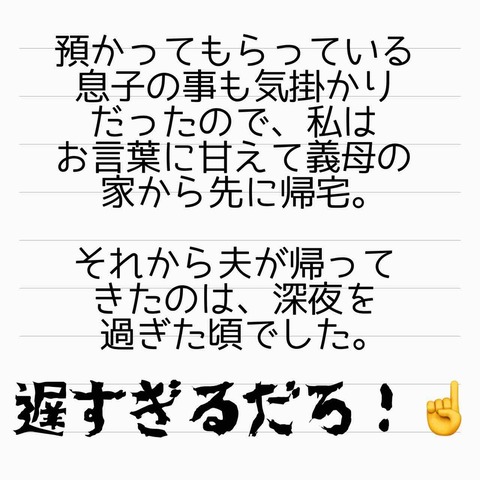 預かってもらっている
息子の事も気掛かり
だったので、私は
お言葉に甘えて義母の
家から先に帰宅。
それから夫が帰って
きたのは、深夜を
過ぎた頃でした。
遅すぎるだろ！☝️